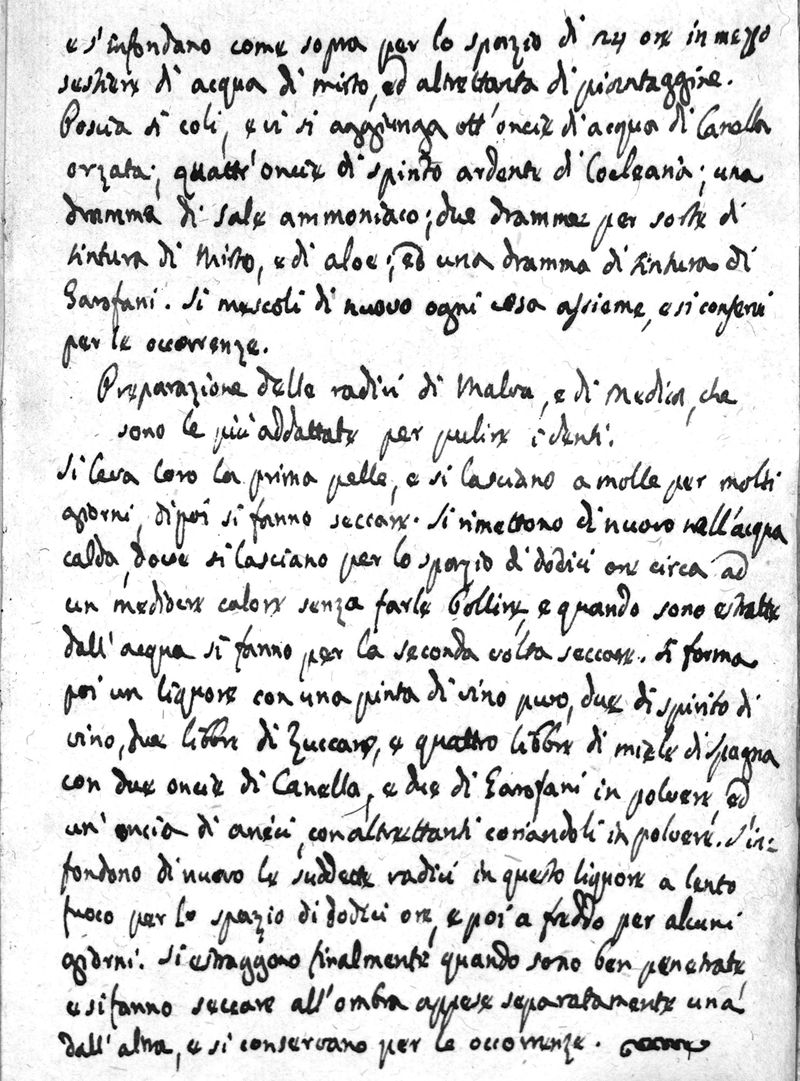 e s'Enfondano come sopra per lo spazio di 24 ore in mezzo
sestiere di acqua di mirto, ed altrettanta di piantaggine.
Poscia si coli, e vi si aggiunga ott'oncie d'acqua di Canella
orzata; quattr'oncie di spirito ardente di Coclearia; una
dramma di sale ammoniaco; due dramme per sorte di
tintura di Mirto, e di aloe; ed una dramma di tintura di
Garofani. Si mescoli di nuovo ogni cosa assieme, e si conservi
per le occorrenze.
Preparazione delle radici di Malva, e di Medica, che
sono le più addattate per pulire i denti.
Si leva loro la prima pelle, e si lasciano a molle per molti
giorni, di poi si fanno seccare. Si rimettono di nuovo nell'acqua
calda, dove si lasciano per lo spazio di dodici ore circa ad
un mediocre calore senza farle bollire, e quando sono estratte
dall'acqua si fanno per la seconda volta seccare. Si forma
poi un liquore con una pinta di vino puro, due di spirito di
vino, due libbre di Zuccaro, e quattro libbre di miele di Spagna
con due oncie di Canella, e due di Garofani in polvere, ed
un'oncia di aneci, con altrettanti coriandoli in polvere. S'in=
fondono di nuovo le suddette radici in questo liquore a lento
fuoco per lo spazio di dodici ore, e poi a freddo per alcuni
giorni. Si estraggono finalmente quando sono ben penetrate,
e si fanno seccare all'ombra appese separatamente una
dall'altra, e si conservano per le occorrenze.